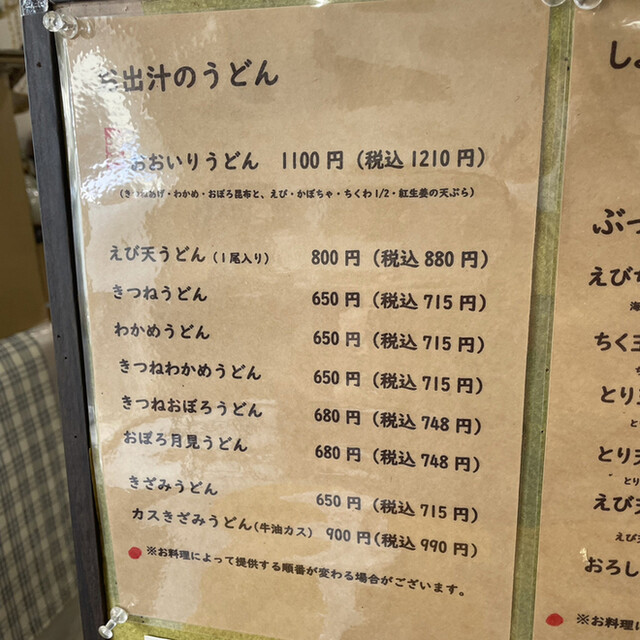 お出汁のうどん
おおいりうどん 1100円（税込1210円）
（きつねあげ・わかめ・おぼろ昆布と、えび・かぼちゃ・ちくわ1/2・紅生姜の天ぷら）
えび天うどん（1尾入り） 800円（税込880円）
きつねうどん 650円（税込715円）
わかめうどん 650円（税込715円）
きつねわかめうどん 650円（税込715円）
きつねおぼろうどん 680円（税込748円）
おぼろ月見うどん 680円（税込748円）
きざみうどん 650円（税込715円）
カスきざみうどん（牛油カス） 900円（税込990円）
※お料理によって提供する順番が変わる場合がございます。
し
ぶっ
えび
海
ちく
とり
と
とり天
とり
えび天
えび天
おろし
※お料理に